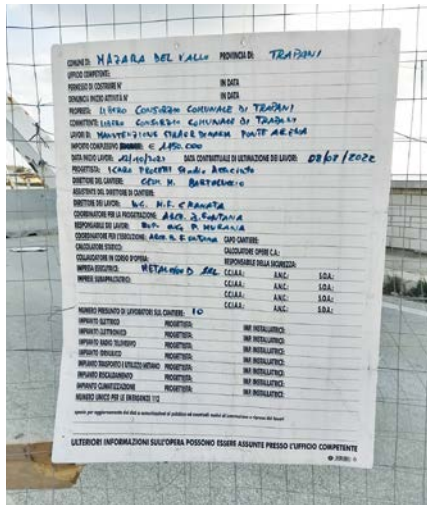 COMUNE DI: MAZARA DEL VALLO PROVINCIA DI: TRAPANI
UFFICIO COMPETENTE:
PERMESSO DI COSTRUIRE N° IN DATA
DENUNCIA INIZIO ATTIVITÀ N° IN DATA
PROPRIETÀ: LIBERO CONSORZIO COMUNALE DI TRAPANI
COMMITTENTE: LIBERO CONSORZIO COMUNALE DI TRAPANI
LAVORI DI: MANUTENZIONE STRAORDINARIA PONTE ARENA
IMPORTO COMPLESSIVO € 1.850.000
DATA INIZIO LAVORI: 12/10/2021 DATA CONTRATTUALE DI ULTIMAZIONE DEI LAVORI: 08/08/2022
PROGETTISTA: ICARO PROGETTI Studio Associato
DIRETTORE DEL CANTIERE: GEOM. M. BARTOLUCCIO
ASSISTENTE DEL DIRETTORE DI CANTIERE:
DIRETTORE DEI LAVORI: ING. M.F. GRANATA
COORDINATORE PER LA PROGETTAZIONE: ARCH. FONTANA
RESPONSABILE DEI LAVORI: ING. P. MURANA
COORDINATORE PER L'ESECUZIONE: ARCH. FONTANA CAPO CANTIERE:
CALCOLATORE STATICO: CALCOLATORE OPERE C.A.:
COLLAUDATORE IN CORSO D'OPERA: RESPONSABILE DELLA SICUREZZA:
IMPRESA ESECUTRICE: METALWOOD SRL C.C.I.A.A.: A.N.C.: S.O.A.:
IMPRESE SUBAPPALTATRICI: C.C.I.A.A.: A.N.C.: S.O.A.:
C.C.I.A.A.: A.N.C.: S.O.A.:
C.C.I.A.A.: A.N.C.: S.O.A.:
NUMERO PRESUNTO DI LAVORATORI SUL CANTIERE: 10
IMPIANTO ELETTRICO PROGETTISTA: IMP. INSTALLATRICE:
IMPIANTO ELETTRONICO PROGETTISTA: IMP. INSTALLATRICE:
IMPIANTO RADIO TELEVISIVO PROGETTISTA: IMP. INSTALLATRICE:
IMPIANTO IDRAULICO PROGETTISTA: IMP. INSTALLATRICE:
IMPIANTO TRASPORTO E UTILIZZO METANO PROGETTISTA: IMP. INSTALLATRICE:
IMPIANTO RISCALDAMENTO PROGETTISTA: IMP. INSTALLATRICE:
IMPIANTO CLIMATIZZAZIONE PROGETTISTA: IMP. INSTALLATRICE:
NUMERO UNICO PER LE EMERGENZE 112
ULTERIORI INFORMAZIONI SULL'OPERA POSSONO ESSERE ASSUNTE PRESSO L'UFFICIO COMPETENTE